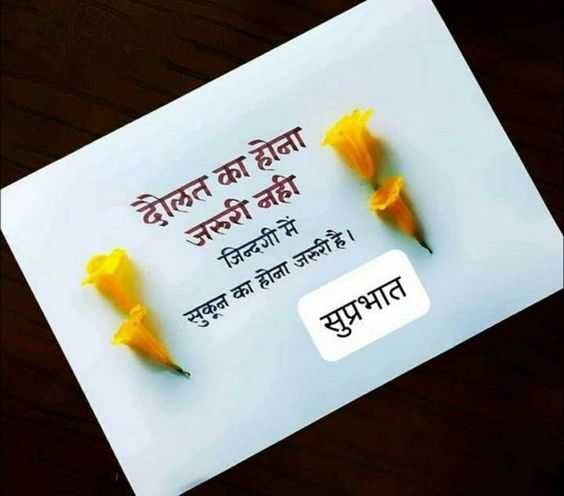 दौलत का होना
जरूरी नही
जिन्दगी में
सुकून का होना जरूरी है।
सुप्रभात